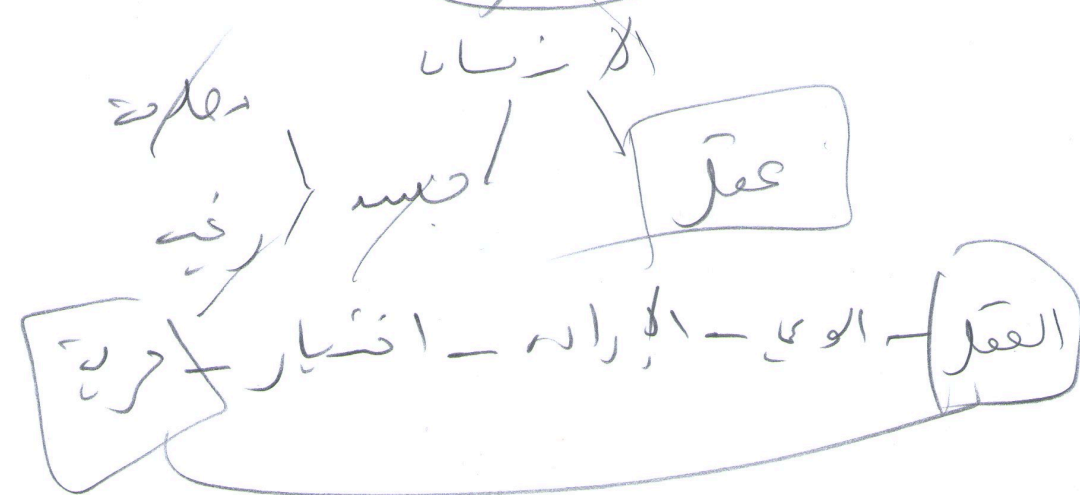 الانسان
عقل
جسد
رغبة
العقل - الوعي - الإرادة - اختيار - حرية